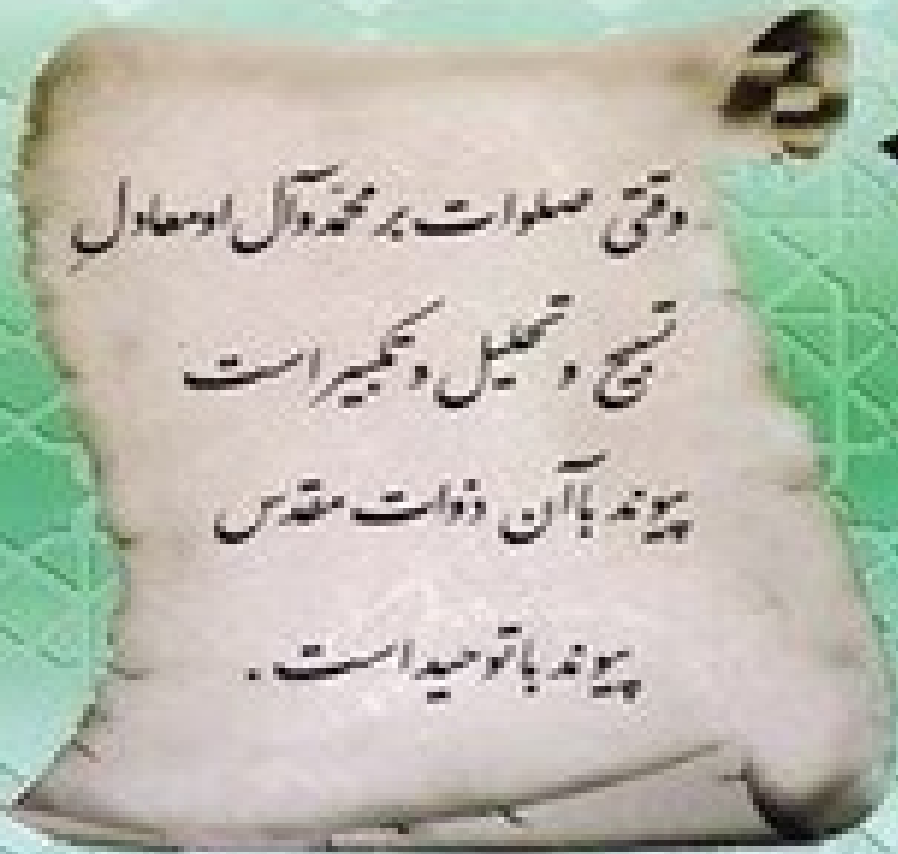 وقتی صلوات بر محمّد و آل او معادلِ
تسبیح و تهلیل و تکبیر است
پیوند با آن ذوات مقدس
پیوند با توحید است.